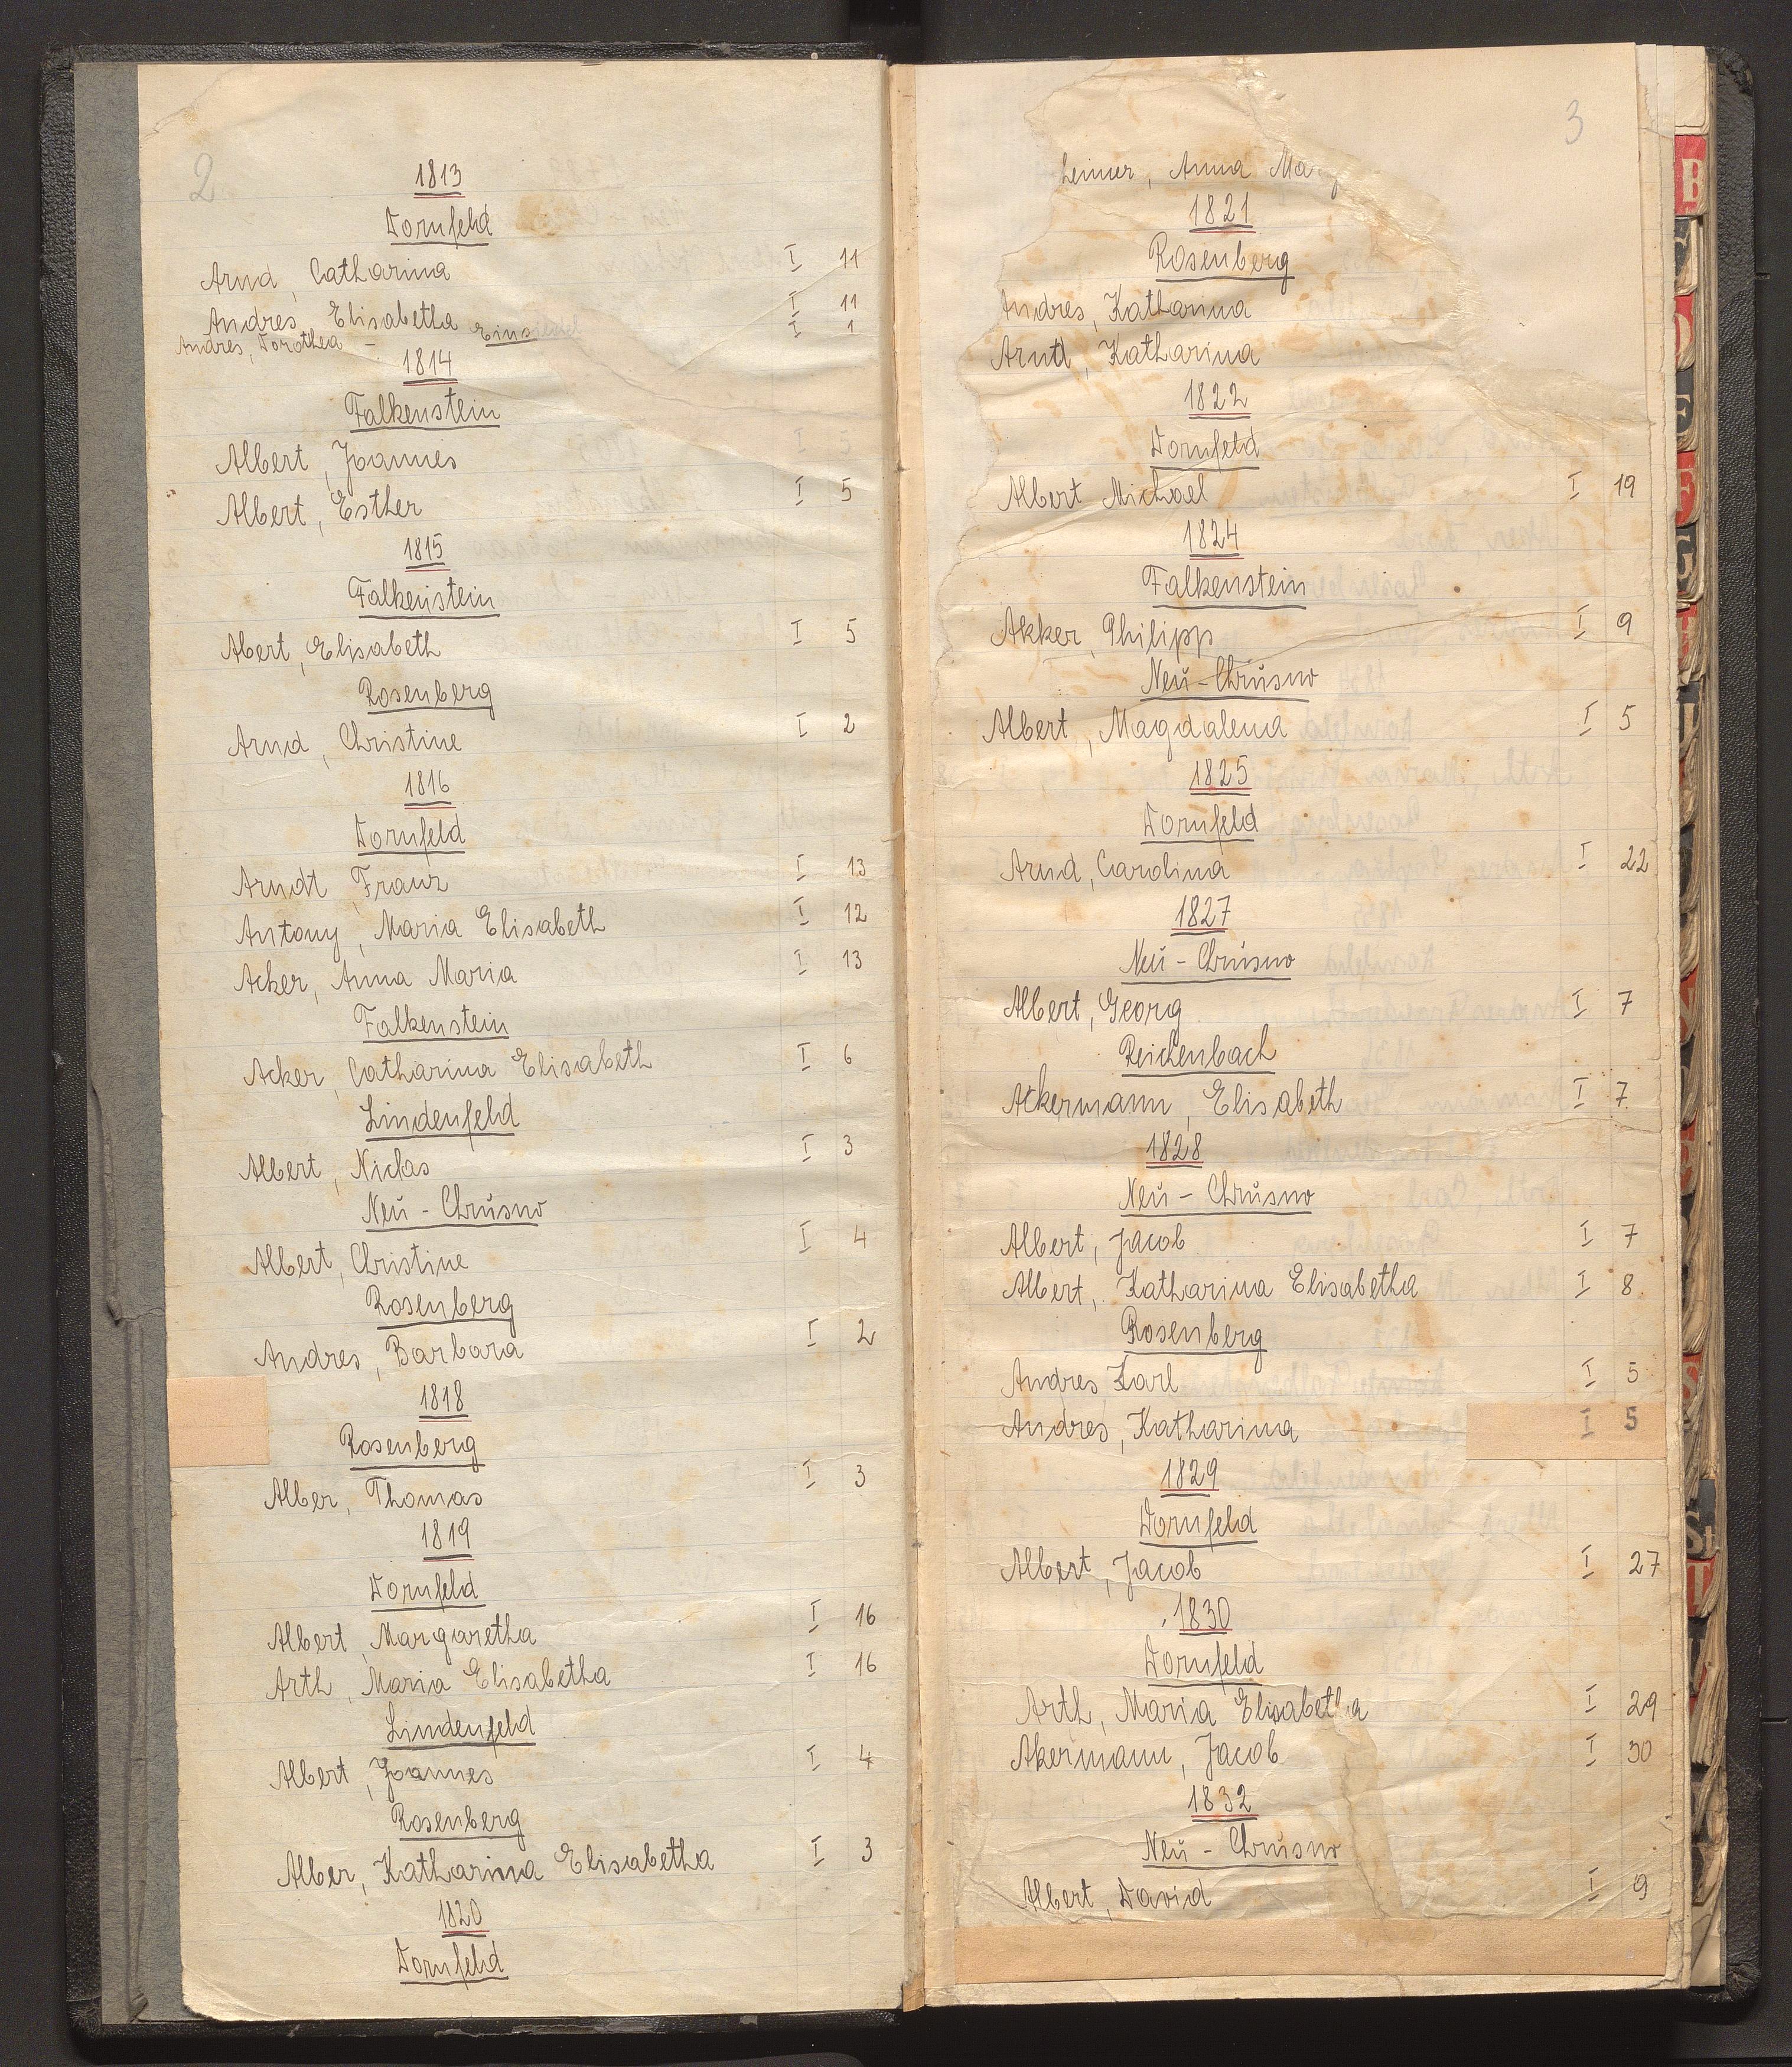 2
1813
Dornfeld
Arnd, Catharina I 11
Andres, Elisabetha I 11
Andres, Dorothea - Eins I 1
1814
Falkenstein
Albert, Joannes I 5
Albert, Esther I 5
1815
Falkenstein
Abert, Elisabeth I 5
Rosenberg
Arnd, Christine I 2
1816
Dornfeld
Arndt, Franz I 13
Antony, Maria Elisabeth I 12
Acker, Anna Maria I 13
Falkenstein
Acker, Catharina Elisabeth I 6
Lindenfeld
Albert, Niclas I 3
Neŭ - Chrŭsno
Albert, Christine I 4
Rosenberg
Andres, Barbara I 2
1818
Rosenberg
Alber, Thomas I 3
1819
Dornfeld
Albert, Margaretha I 16
Arth, Maria Elisabetha I 16
Lindenfeld
Albert, Joannes I 4
Rosenberg
Alber, Katharina Elisabetha I 3
1820
Dornfeld
3
Anna
1821
Rosenberg
Andres, Katharina
Arndt, Katharina
1822
Dornfeld
Albert Michael I 19
1824
Falkenstein
Akker, Philipp I 9
Neŭ - Chrŭsno
Albert, Magdalena I 5
1825
Dornfeld
Arnd, Carolina I 22
1827
Neŭ - Chrŭsno
Albert, Georg I 7
Reichenbach
Ackermann, Elisabeth I 7
1828
Neŭ - Chrŭsno
Albert, Jacob I 7
Albert, Katharina Elisabetha I 8
Rosenberg
Andres Karl I 5
Andres, Katharina I 5
1829
Dornfeld
Albert, Jacob I 27
1830
Dornfeld
Arth, Maria Elisabetha I 29
Akermann, Jacob I 30
1832
Neŭ - Chrŭsno
Albert, David I 9
B